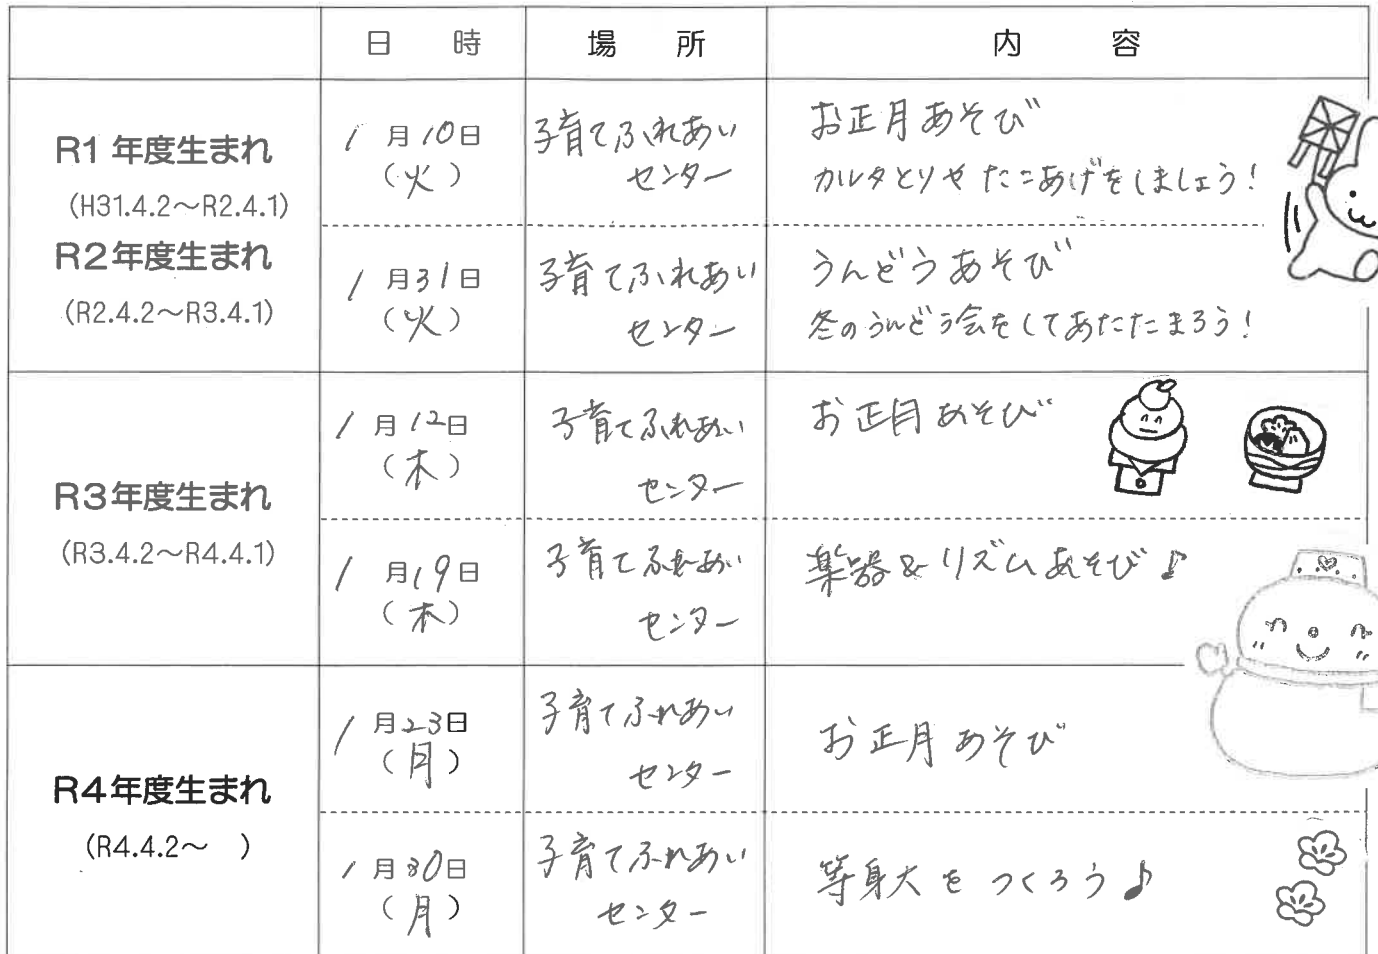 日　時　場　所　内　容
R1年度生まれ
(H31.4.2～R2.4.1)
R2年度生まれ
(R2.4.2～R3.4.1)
1月10日
(火)
子育てふれあい
センター
お正月あそび
カルタとりや たこあげをしましょう！
1月31日
(火)
子育てふれあい
センター
うんどうあそび
冬のうんどう会をしてあたたまろう！
R3年度生まれ
(R3.4.2～R4.4.1)
1月12日
(木)
子育てふれあい
センター
お正月あそび
1月19日
(木)
子育てふれあい
センター
楽器&リズムあそび♪
R4年度生まれ
(R4.4.2～　)
1月23日
(月)
子育てふれあい
センター
お正月あそび
1月30日
(月)
子育てふれあい
センター
等身大をつくろう♪